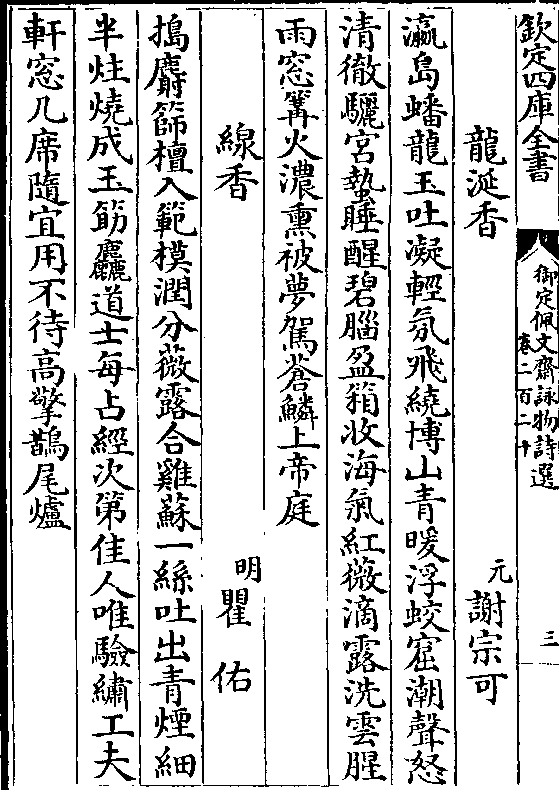 欽定四庫全書
御定佩文齋詠物詩選
卷二百二十
三
龍涎香
元
謝宗可
瀛島蟠龍玉吐凝輕氛飛繞博山青暖浮蛟窟潮聲怒
清徹驪宮蟄睡醒碧腦盈箱收海氣紅薇滴露洗雲腥
雨窓篝火濃熏被夢駕蒼鱗上帝庭
線香
明
瞿佑
搗麝篩檀入範模潤分薇露合雞蘇一絲吐出青煙細
半炷燒成玉筯麤道士每占經次第佳人唯驗繡工夫
軒窓几席隨宜用不待高擎鵲尾爐